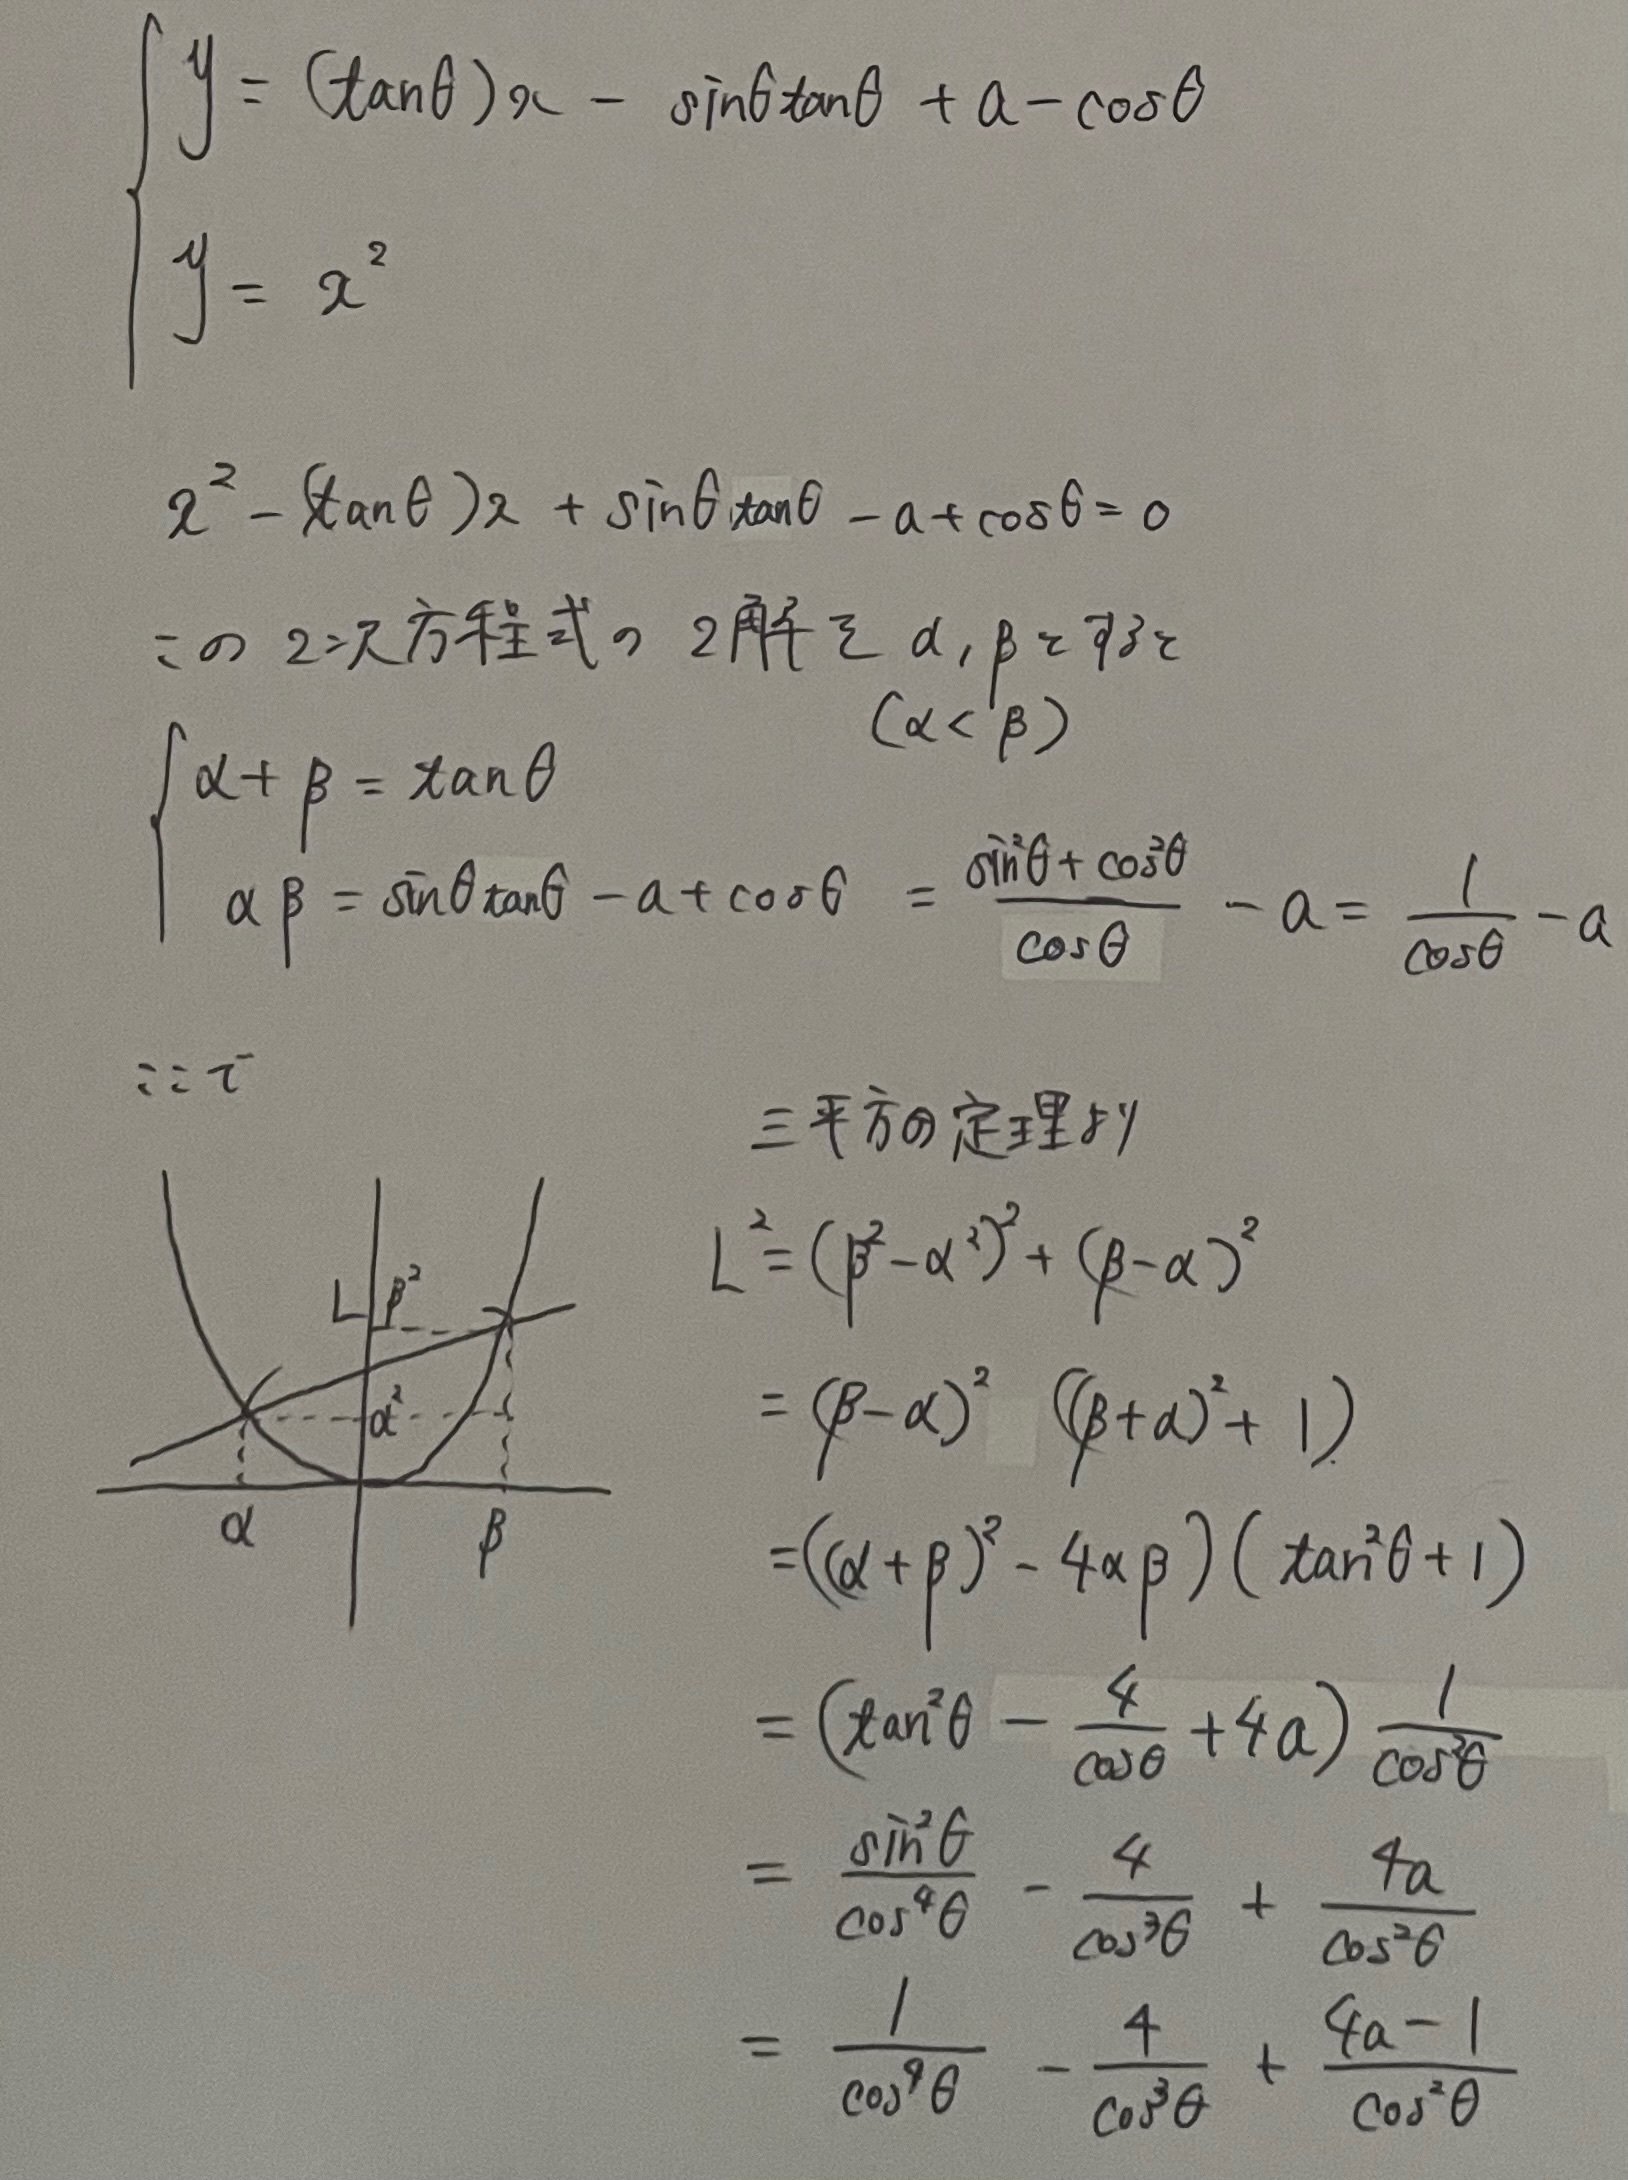 y = (tanθ)x - sinθtanθ + a - cosθ
y = x²
x² - (tanθ)x + sinθtanθ - a + cosθ = 0
この2次方程式の2解をα, βとすると
(α < β)
α + β = tanθ
αβ = sinθtanθ - a + cosθ = (sin²θ + cos²θ)/cosθ - a = 1/cosθ - a
ここで
三平方の定理より
L² = (β² - α²)² + (β - α)²
= (β - α)² ((β + α)² + 1)
= ((α + β)² - 4αβ)(tan²θ + 1)
= (tan²θ - 4/cosθ + 4a) 1/cos²θ
= sin²θ/cos⁴θ - 4/cos³θ + 4a/cos²θ
= 1/cos⁴θ - 4/cos³θ + (4a - 1)/cos²θ
L β²
α²
α β